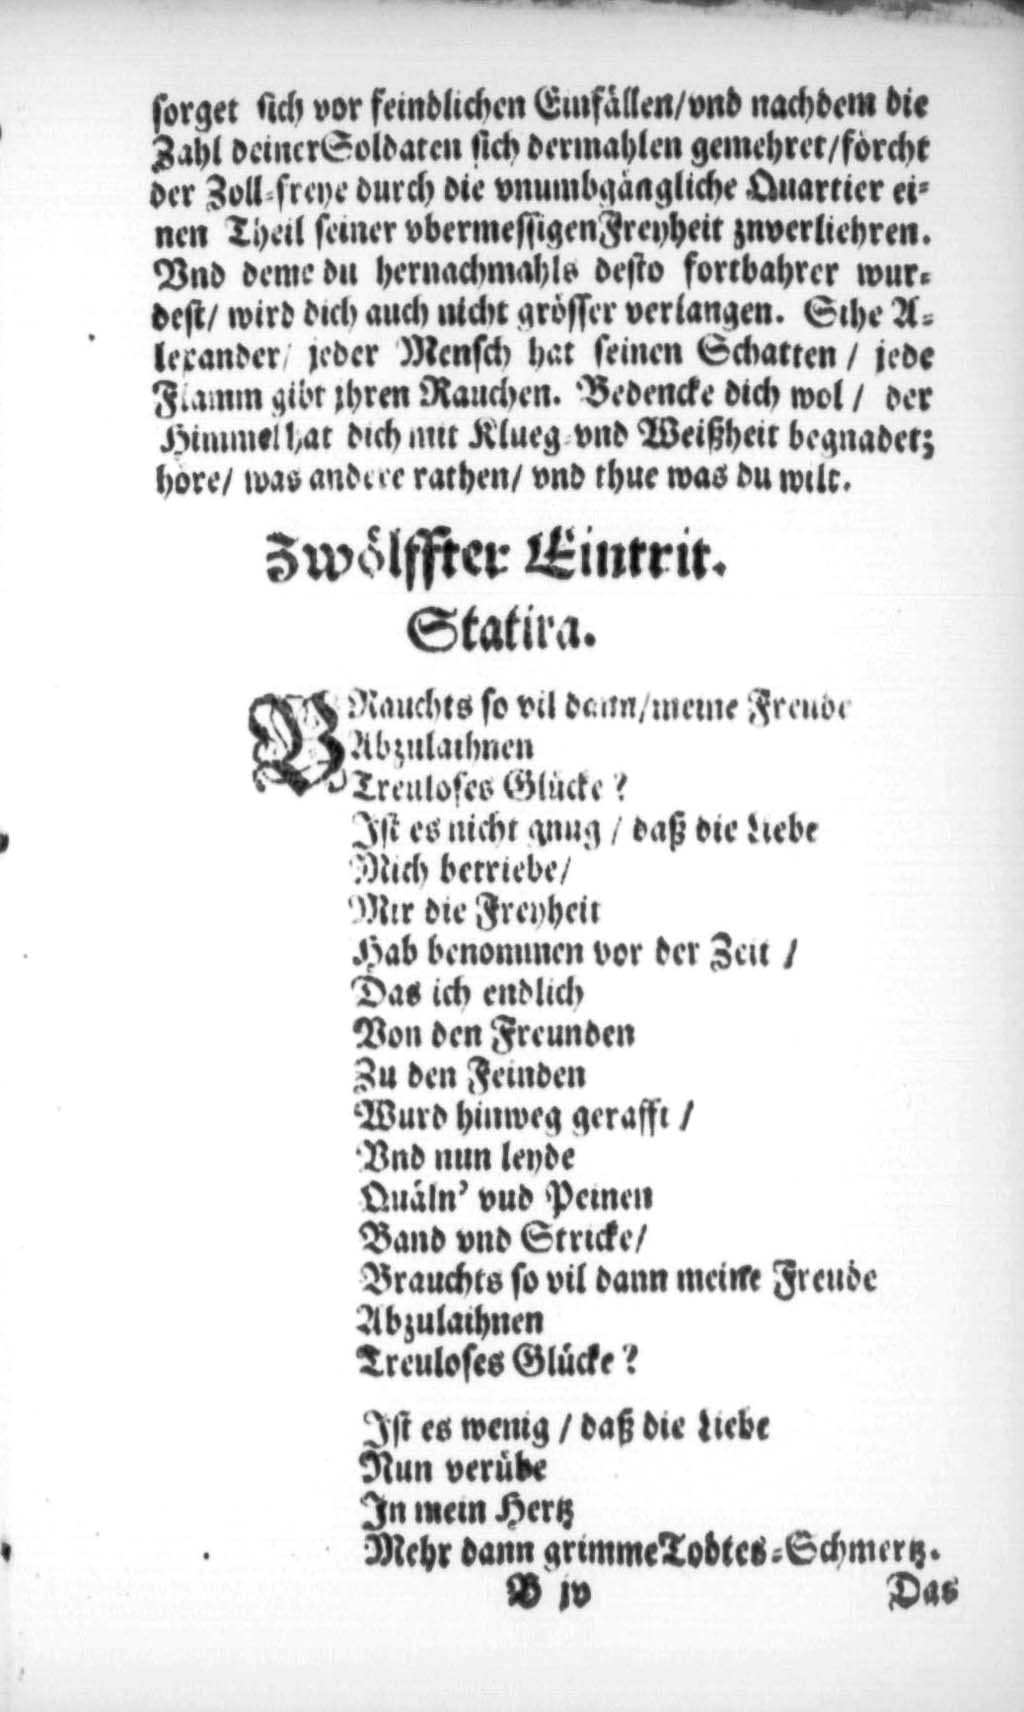 sorget sich vor feindlichen Einfällen/vnd nachdem die
Zahl deiner Soldaten sich dermahlen gemehret/förcht
der Zoll-freye durch die vnumbgängliche Quartier ei-
nen Theil seiner vbermessigen Freyheit znverliehren.
Vnd deme du hernachmahls desto fortbahrer wur-
dest/ wird dich auch nicht grösser verlangen. Sihe A-
lexander/ jeder Mensch hat seinen Schatten / jede
Flamm gibt jhren Rauchen. Bedencke dich wol / der
Himmel hat dich mit Klueg-vnd Weißheit begnadet;
höre/ was andere rathen/ vnd thue was du wilt.
Zwölffter Eintrit.
Statira.
BRauchts so vil dann/meine Freude
Abzulaihnen
Treuloses Glücke?
Ist es nicht gnug / daß die Liebe
Mich betriebe/
Mir die Freyheit
Hab benommen vor der Zeit /
Das ich endlich
Von den Freunden
Zu den Feinden
Wurd hinweg gerafft /
Vnd nun leyde
Quäln' vud Peinen
Band vnd Stricke/
Brauchts so vil dann meine Freude
Abzulaihnen
Treuloses Glücke?
Ist es wenig / daß die Liebe
Nun verübe
In mein Hertz
Mehr dann grimme Todtes-Schmertz.
B jv Das